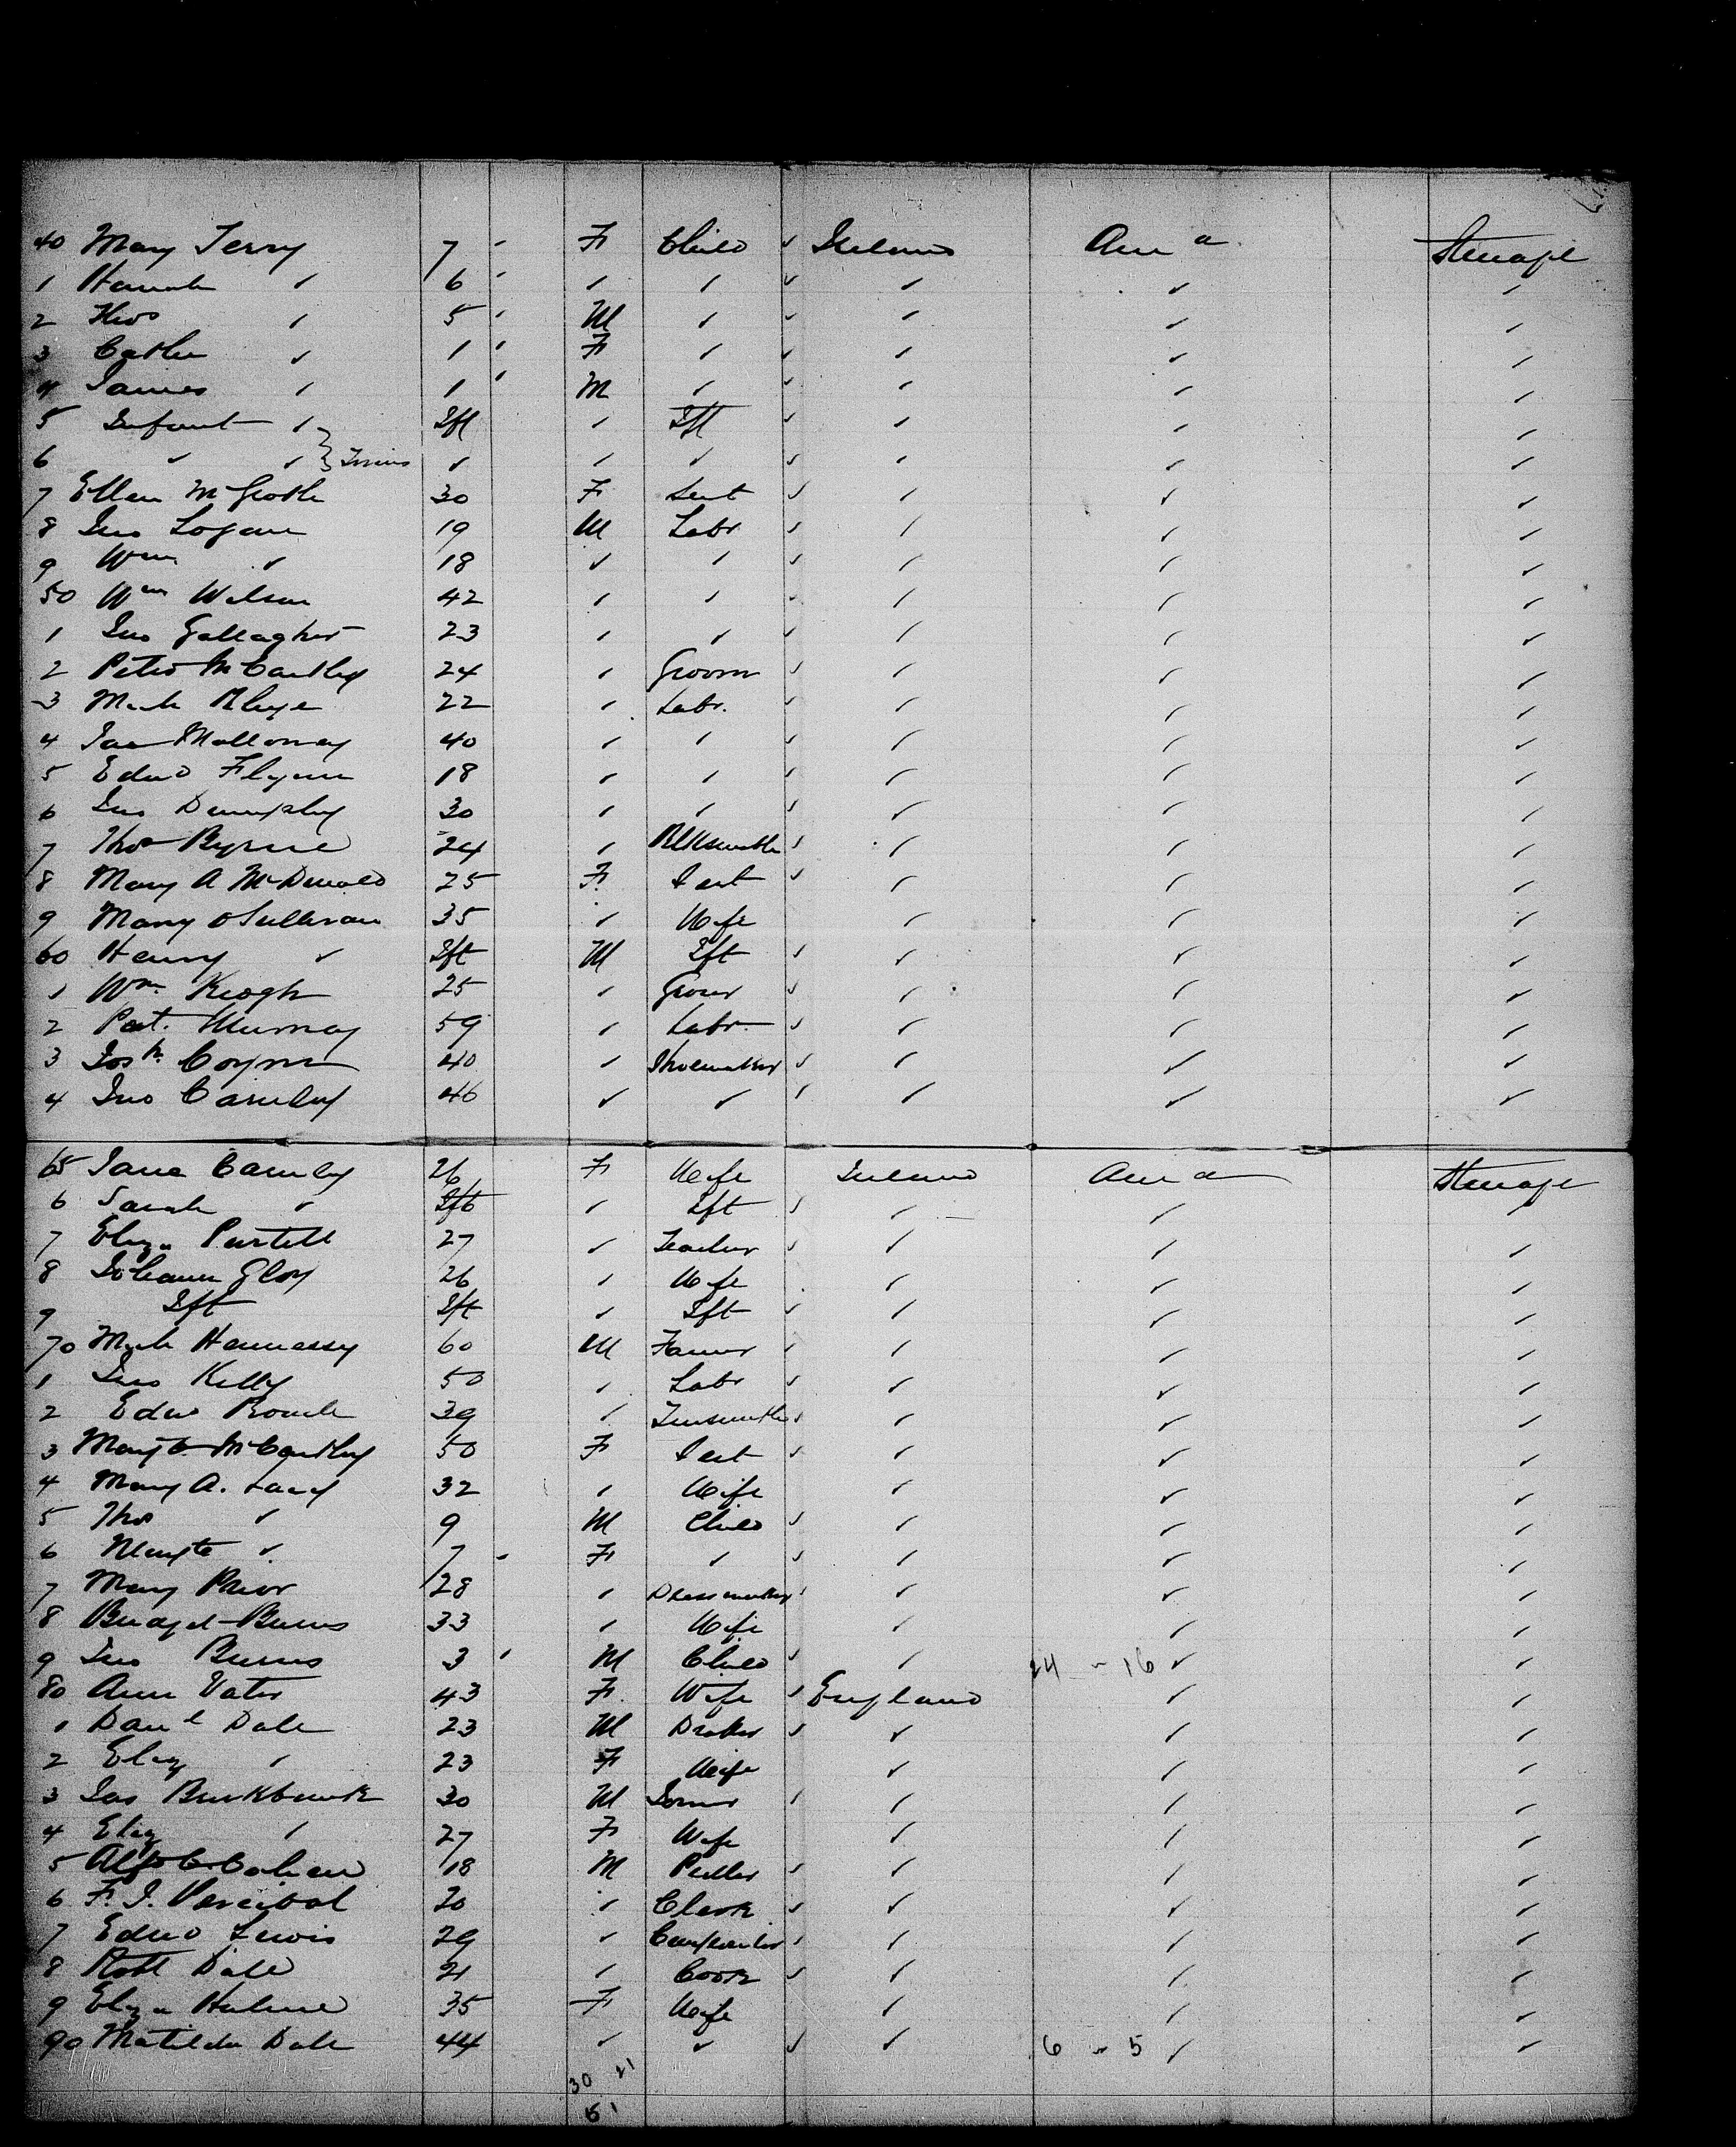 40 Mary Terry 7 - F Child ✓ Ireland Am a Steerage
1 Hannah ✓ 6 ✓ ✓ ✓ ✓ ✓ ✓
2 Thos ✓ 5 M ✓ ✓ ✓ ✓ ✓
3 Cathe ✓ 1 F ✓ ✓ ✓ ✓ ✓
4 James ✓ 1 M ✓ ✓ ✓ ✓ ✓
5 Infant ✓ Ift ✓ Ift ✓ ✓ ✓ ✓
6 ✓ ✓ } Twins ✓ ✓ ✓ ✓ ✓ ✓ ✓
7 Ellen McGrath 30 F Sert ✓ ✓ ✓ ✓
8 Jno Logan 19 M Labr ✓ ✓ ✓ ✓
9 Wm ✓ 18 ✓ ✓ ✓ ✓ ✓ ✓
50 Wm Wilson 42 ✓ ✓ ✓ ✓ ✓ ✓
1 Jno Gallagher 23 ✓ ✓ ✓ ✓ ✓ ✓
2 Peter McCarthy 24 ✓ Groom ✓ ✓ ✓ ✓
3 22 ✓ Labr. ✓ ✓ ✓ ✓
4 Jas Molloney 40 ✓ ✓ ✓ ✓ ✓ ✓
5 Edwd Flynn 18 ✓ ✓ ✓ ✓ ✓ ✓
6 Jno Dunphy 30 ✓ ✓ ✓ ✓ ✓ ✓
7 Thos Byrne 24 ✓ Blksmith ✓ ✓ ✓ ✓
8 Mary A McDonald 25 F Sert ✓ ✓ ✓ ✓
9 Mary O Sullivan 35 ✓ Wife ✓ ✓ ✓
60 Henry ✓ Ift M Ift ✓ ✓ ✓ ✓
1 Wm Keogh 25 ✓ Grocer ✓ ✓ ✓ ✓
2 Pat. Murray 59 ✓ Labr ✓ ✓ ✓ ✓
3 Josh Coyne 40 ✓ Shoemaker ✓ ✓ ✓ ✓
4 Jno 46 ✓ ✓ ✓ ✓ ✓ ✓
65 Jane 26 F Wife Ireland Am a Steerage
6 Sarah ✓ Ift ✓ Ift ✓ ✓ ✓ ✓
7 Eliza Purtell 27 ✓ Teacher ✓ ✓ ✓ ✓
8 Johanna 26 ✓ Wife ✓ ✓ ✓
9 Ift Ift ✓ Ift ✓ ✓ ✓ ✓
70 Mich Hennessy 60 M Farmer ✓ ✓ ✓ ✓
1 Jno Kelly 50 ✓ Labr ✓ ✓ ✓ ✓
2 Edwd Roach 39 ✓ Tinsmith ✓ ✓ ✓ ✓
3 McCarthy 50 F Sert ✓ ✓ ✓ ✓
4 Mary A. Lacy 32 ✓ Wife ✓ ✓ ✓
5 Thos ✓ 9 M Child ✓ ✓ ✓ ✓
6 Margte ✓ 7 - F ✓ ✓ ✓ ✓ ✓
7 Mary Prior 28 ✓ Dressmaker ✓ ✓ ✓ ✓
8 Bridget Burns 33 ✓ Wife ✓ ✓ ✓
9 Jno Burns 3 M Child ✓ ✓ 24 - 16 ✓ ✓
80 Ann Vater 43 F Wife ✓ England ✓ ✓
1 Danl Dale 23 M ✓ ✓ ✓ ✓
2 Eliz ✓ 23 F Wife ✓ ✓ ✓
3 Jas 30 M Joiner ✓ ✓ ✓ ✓
4 Eliz ✓ 27 F Wife ✓ ✓ ✓
5 18 M ✓ ✓ ✓ ✓
6 F. J. Percival 20 ✓ Clerk ✓ ✓ ✓ ✓
7 Edwd Lewis 29 ✓ Carpenter ✓ ✓ ✓ ✓
8 Robt Dale 21 ✓ Cook ✓ ✓ ✓ ✓
9 Eliza Hulme 35 F Wife ✓ ✓ ✓
90 Matilda Dale 44 ✓ ✓ ✓ ✓ 6 - 5 ✓ ✓
30 21
51